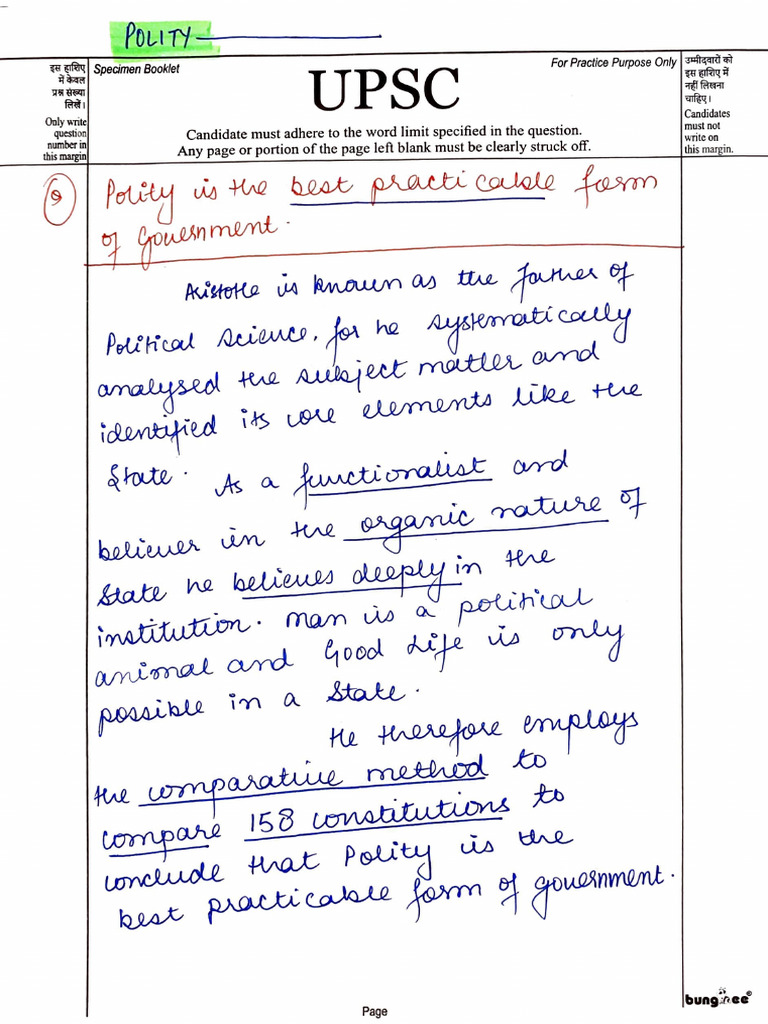 POLITY
इस हाशिए
में केवल
प्रश्न संख्या
लिखें।
Only write
question
number in
this margin
Specimen Booklet
For Practice Purpose Only
UPSC
Candidate must adhere to the word limit specified in the question.
Any page or portion of the page left blank must be clearly struck off.
उम्मीदवारों को
इस हाशिए में
नहीं लिखना
चाहिए।
Candidates
must not
write on
this margin.
Q
Polity is the best practicable form
of Government.
Aristotle is known as the father of
Political Science, for he systematically
analysed the subject matter and
identified its core elements like the
State. As a functionalist and
believer in the organic nature of
State he believes deeply in the
institution. Man is a political
animal and Good Life is only
possible in a State.
He therefore employs
the comparative method to
compare 158 constitutions to
conclude that Polity is the
best practicable form of government.
Page
bungree